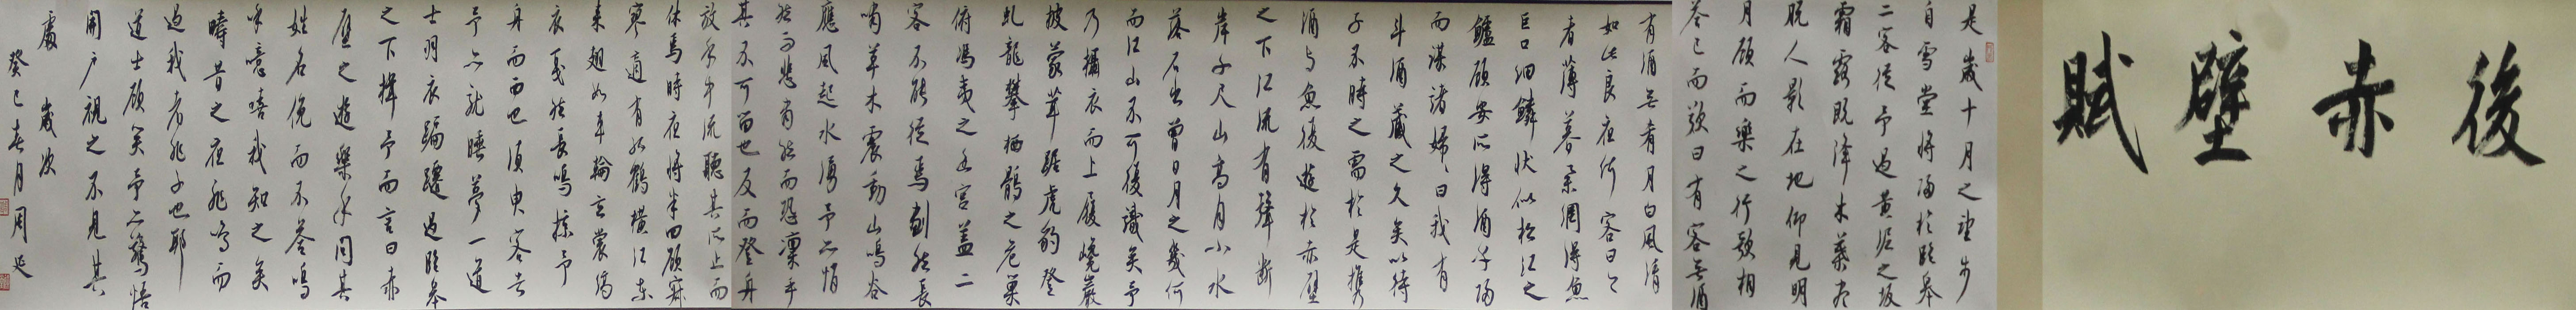 後赤壁賦
是歲十月之望步
自雪堂將歸於臨皋
二客從予過黃泥之坂
霜露既降木葉盡
脫人影在地仰見明
月顧而樂之行歌相
答已而歎曰有客無酒
有酒無肴月白風清
如此良夜何客曰今
者薄暮舉網得魚
巨口細鱗狀似松江之
鱸顧安所得酒乎歸
而謀諸婦婦曰我有
斗酒藏之久矣以待
子不時之需於是攜
酒與魚復遊於赤壁
之下江流有聲斷
岸千尺山高月小水
落石出曾日月之幾何
而江山不可復識矣予
乃攝衣而上履巉巖
披蒙茸踞虎豹登
虬龍攀栖鶻之危巢
俯馮夷之幽宮蓋二
客不能從焉劃然長
嘯草木震動山鳴谷
應風起水湧予亦悄
然而悲肅然而恐凜乎
其不可留也反而登舟
放乎中流聽其所止而
休焉時夜將半四顧寂
寥適有孤鶴橫江東
來翅如車輪玄裳縞
衣戛然長鳴掠予
舟而西也須臾客去
予亦就睡夢一道
士羽衣蹁躚過臨皋
之下揖予而言曰赤
壁之遊樂乎問其
姓名俛而不答嗚
呼噫嘻我知之矣
疇昔之夜飛鳴而
過我者非子也耶
道士顧笑予亦驚悟
開戶視之不見其
處 歲次
癸巳春月周